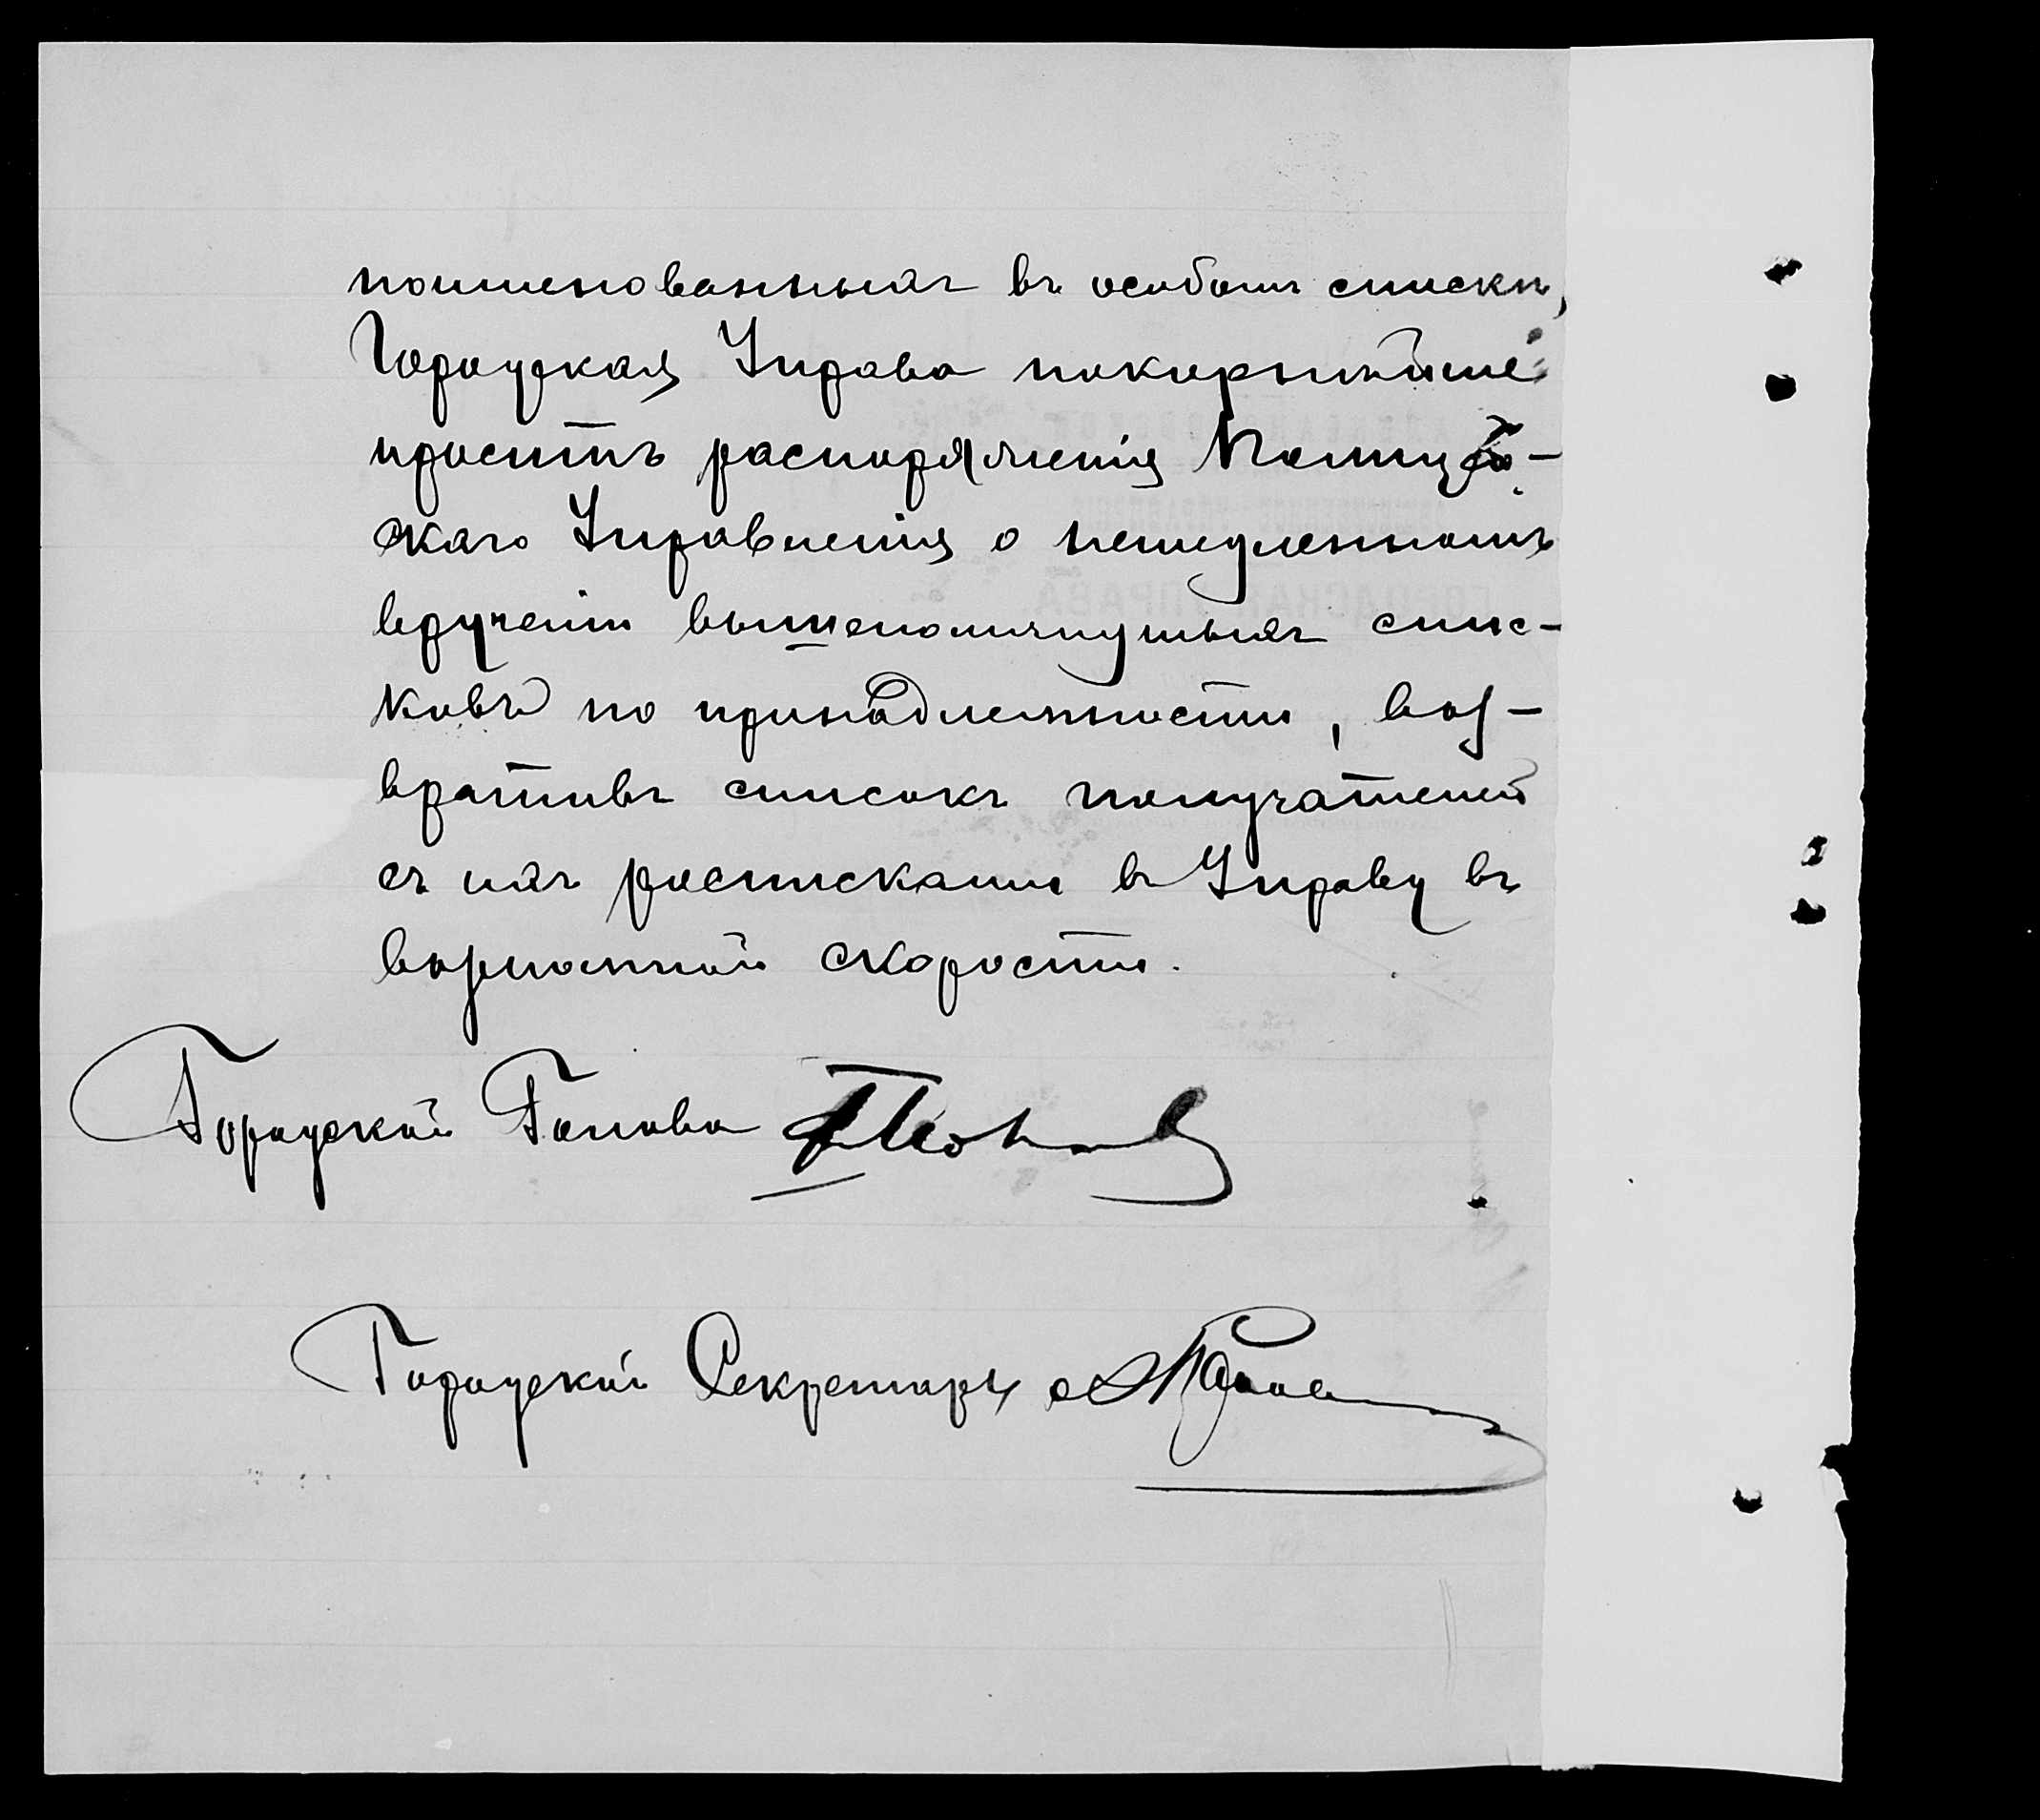 поименованныхъ въ особомъ списке,
Городская Управа покорнѣйше
проситъ распоряженія Полицей-
скаго Управленія о немедленномъ
врученіи вышепомянутыхъ спис-
ковъ по принадлежности, воз-
вративъ списокъ получателей
съ ихъ росписками въ Управу въ
возможной скорости.
Городской Голова
Городской Секретарь